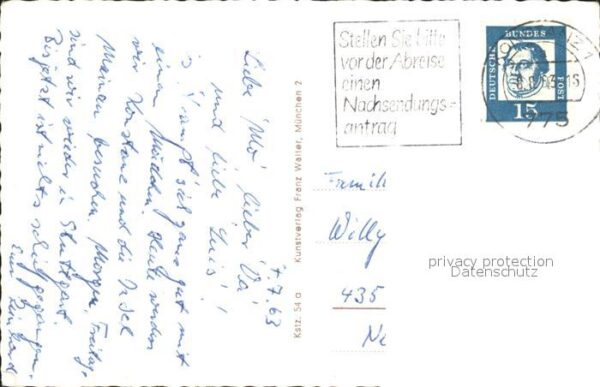 4.7.63
Liebe Mo, lieber Va
und liebe
!
sich ganz gut mit
einem Mädchen. Heute werden
wir Konstanz und die Insel
Mainau besuchen. Morgen, Freitag,
sind wir wieder in Stuttgart.
Bis jetzt ist nichts schiefgegangen.
Kstz. 54 a Kunstverlag Franz Walter, München 2
Stellen Sie bitte
vor der Abreise
einen
Nachsendungs=
antrag
DEUTSCHE BUNDESPOST
15
775
Famili
Willy
435
privacy protection
Datenschutz